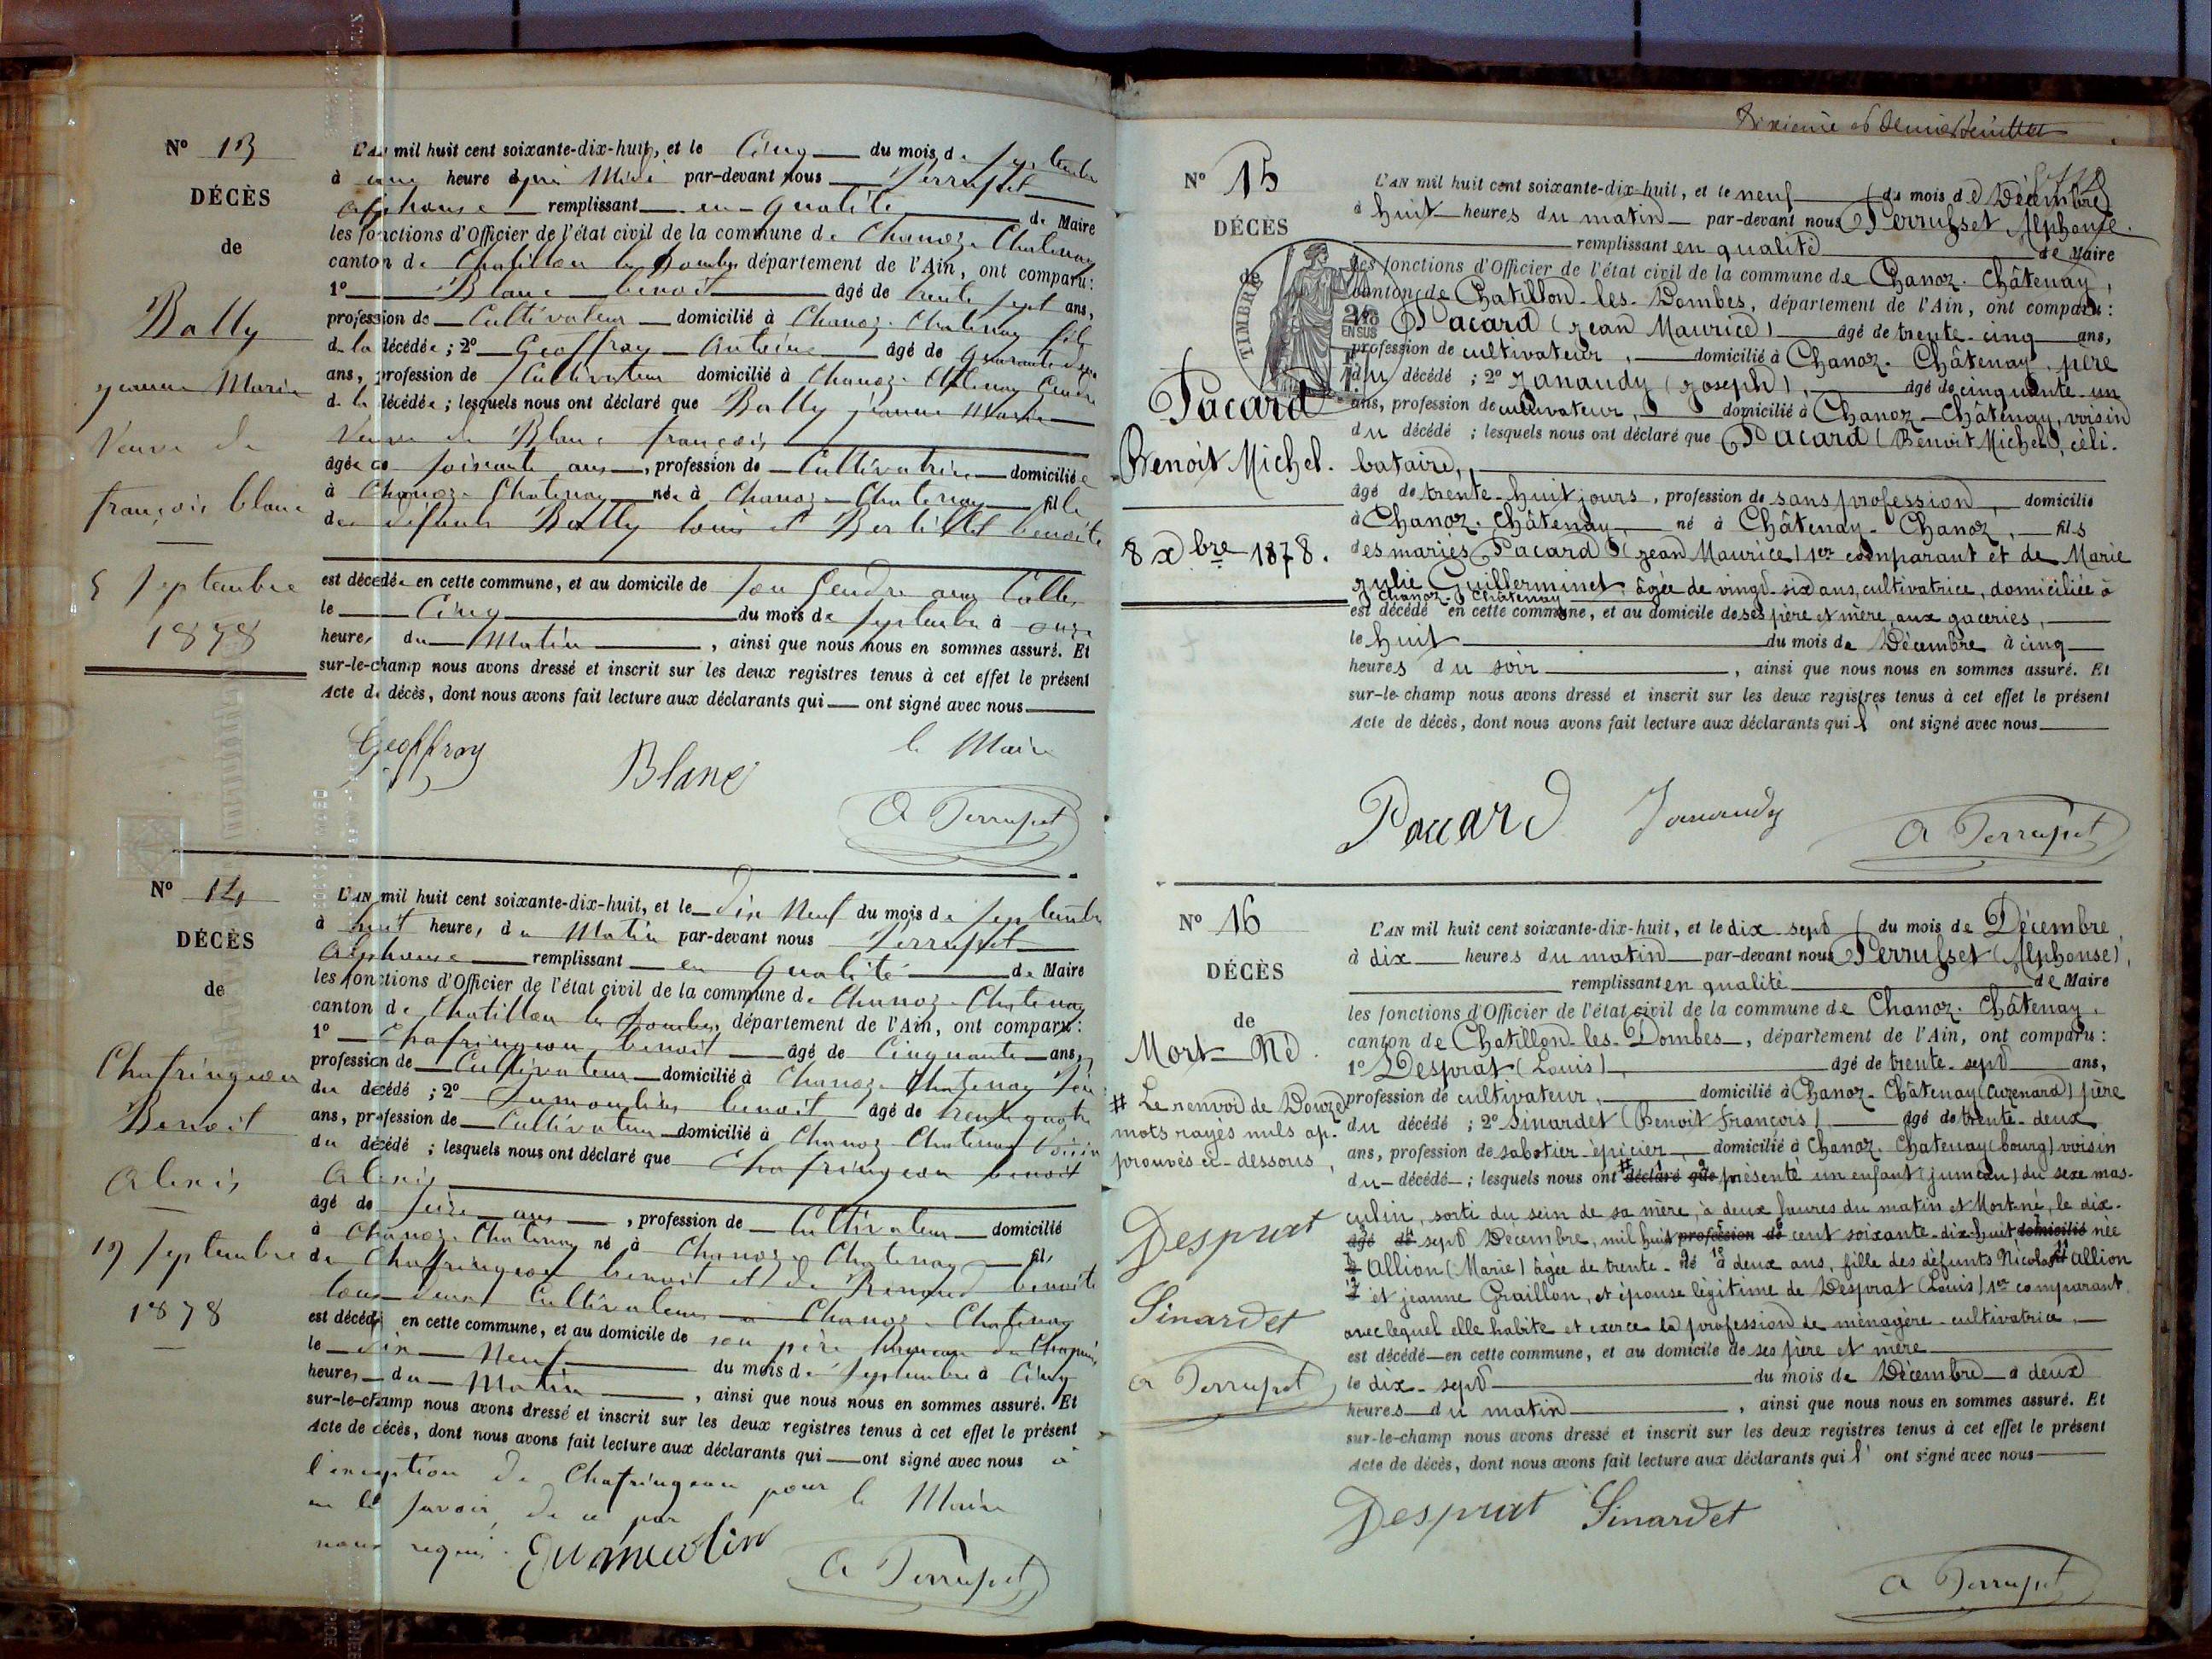 Nº 13
DÉCÈS
de
Bally
jeanne Marie
Veuve de
françois blanc
5 Septembre
1878
L'AN mil huit cent soixante-dix-huit, et le Cinq du mois de Septembre
à une heure après Midi par-devant nous Perrusset
Alphonse remplissant en qualité de Maire
les fonctions d'Officier de l'état civil de la commune de Chanoz-Chatenay
canton de Chatillon les Dombes, département de l'Ain, ont comparu:
1º Blanc benoit âgé de trente sept ans,
profession de Cultivateur domicilié à Chanoz-Chatenay fils
de la décédée ; 2º Geoffray Antoine âgé de quarante
ans, profession de Cultivateur domicilié à Chanoz-Chatenay Gendre
de la décédée ; lesquels nous ont déclaré que Bally jeanne Marie
Veuve de Blanc françois
âgée de soixante ans, profession de Cultivatrice domiciliée
à Chanoz-Chatenay née à Chanoz-Chatenay fille
des défunts Bally louis et benoite
est décédée en cette commune, et au domicile de son Gendre aux
le Cinq du mois de Septembre à onze
heures du Matin, ainsi que nous nous en sommes assuré. Et
sur-le-champ nous avons dressé et inscrit sur les deux registres tenus à cet effet le présent
Acte de décès, dont nous avons fait lecture aux déclarants qui ont signé avec nous
Geoffray Blanc le Maire
A Perrusset
Nº 14
DÉCÈS
de
Chafringeon
Benoit
Alexis
19 Septembre
1878
L'AN mil huit cent soixante-dix-huit, et le dix Neuf du mois de Septembre
à huit heures du Matin par-devant nous Perrusset
Alphonse remplissant en qualité de Maire
les fonctions d'Officier de l'état civil de la commune de Chanoz-Chatenay
canton de Chatillon les Dombes, département de l'Ain, ont comparu:
1º Chafringeon benoit âgé de Cinquante ans,
profession de Cultivateur domicilié à Chanoz-Chatenay père
du décédé ; 2º Dumoulin benoit âgé de trente quatre
ans, profession de Cultivateur domicilié à Chanoz-Chatenay Voisin
du décédé ; lesquels nous ont déclaré que Chafringeon benoit
Alexis
âgé de seize ans, profession de Cultivateur domicilié
à Chanoz-Chatenay né à Chanoz-Chatenay fils
de Chafringeon benoit et de Renaud benoite
tous deux Cultivateurs à Chanoz-Chatenay
est décédé en cette commune, et au domicile de son père hameau du
le dix Neuf du mois de Septembre à Cinq
heures du Matin, ainsi que nous nous en sommes assuré. Et
sur-le-champ nous avons dressé et inscrit sur les deux registres tenus à cet effet le présent
Acte de décès, dont nous avons fait lecture aux déclarants qui ont signé avec nous à
l'exception de Chafringeon pour
ne le savoir, de ce par le Maire
nous requis. Dumoulin
A Perrusset
Dixième et dernier feuillet
Nº 15
DÉCÈS
de
TIMBRE
2/10
EN SUS
Pacard
Benoit Michel.
8 Xbre 1878.
L'AN mil huit cent soixante-dix-huit, et le neuf du mois de Décembre
à huit heures du matin par-devant nous Perrusset Alphonse.
remplissant en qualité de Maire
les fonctions d'Officier de l'état civil de la commune de Chanoz-Châtenay,
canton de Chatillon-les-Dombes, département de l'Ain, ont comparu:
1º Pacard (Jean Maurice) âgé de trente-cinq ans,
profession de cultivateur, domicilié à Chanoz-Châtenay, père
du décédé ; 2º Janaudy (Joseph), âgé de cinquante-un
ans, profession de cultivateur, domicilié à Chanoz-Châtenay, voisin
du décédé ; lesquels nous ont déclaré que Pacard (Benoit Michel), céli-
bataire,
âgé de trente-huit jours, profession de sans profession, domicilié
à Chanoz-Châtenay, né à Châtenay-Chanoz, fils
des mariés Pacard (Jean Maurice) 1er comparant et de Marie
Julie Guillerminet, âgée de vingt-six ans, cultivatrice, domiciliée à
Chanoz-Châtenay
est décédé en cette commune, et au domicile de ses père et mère, aux gaceries,
le huit du mois de Décembre à cinq
heures du soir, ainsi que nous nous en sommes assuré. Et
sur-le-champ nous avons dressé et inscrit sur les deux registres tenus à cet effet le présent
Acte de décès, dont nous avons fait lecture aux déclarants qui l' ont signé avec nous
Pacard Janaudy A Perrusset
Nº 16
DÉCÈS
de
Mort-Né.
# Le renvoi de Douze
mots rayés nuls ap-
prouvés ci-dessous,
Desprat
Sinardet
A Perrusset
L'AN mil huit cent soixante-dix-huit, et le dix-sept du mois de Décembre,
à dix heures du matin par-devant nous Perrusset (Alphonse),
remplissant en qualité de Maire
les fonctions d'Officier de l'état civil de la commune de Chanoz-Châtenay,
canton de Chatillon-les-Dombes, département de l'Ain, ont comparu:
1º Desprat (Louis) âgé de trente-sept ans,
profession de cultivateur, domicilié à Chanoz-Châtenay (Cuzenard) père
du décédé ; 2º Sinardet (Benoit François) âgé de trente-deux
ans, profession de sabotier-épicier, domicilié à Chanoz-Chatenay (bourg) voisin
du décédé ; lesquels nous ont # déclaré que présenté un enfant (jumeau) du sexe mas-
culin, sorti du sein de sa mère, à deux heures du matin et Mort né, le dix-
âgé de sept Décembre, mil huit profession de cent soixante-dix-huit, domicilié née
à Allion (Marie) âgée de trente- né à deux ans, fille des défunts Nicolas fil Allion
et jeanne Graillon, et épouse légitime de Desprat (Louis) 1er comparant,
avec lequel elle habite et exerce la profession de ménagère-cultivatrice,
est décédé en cette commune, et au domicile de ses père et mère
le dix-sept du mois de Décembre à deux
heures du matin, ainsi que nous nous en sommes assuré. Et
sur-le-champ nous avons dressé et inscrit sur les deux registres tenus à cet effet le présent
Acte de décès, dont nous avons fait lecture aux déclarants qui l' ont signé avec nous
Desprat Sinardet
A Perrusset